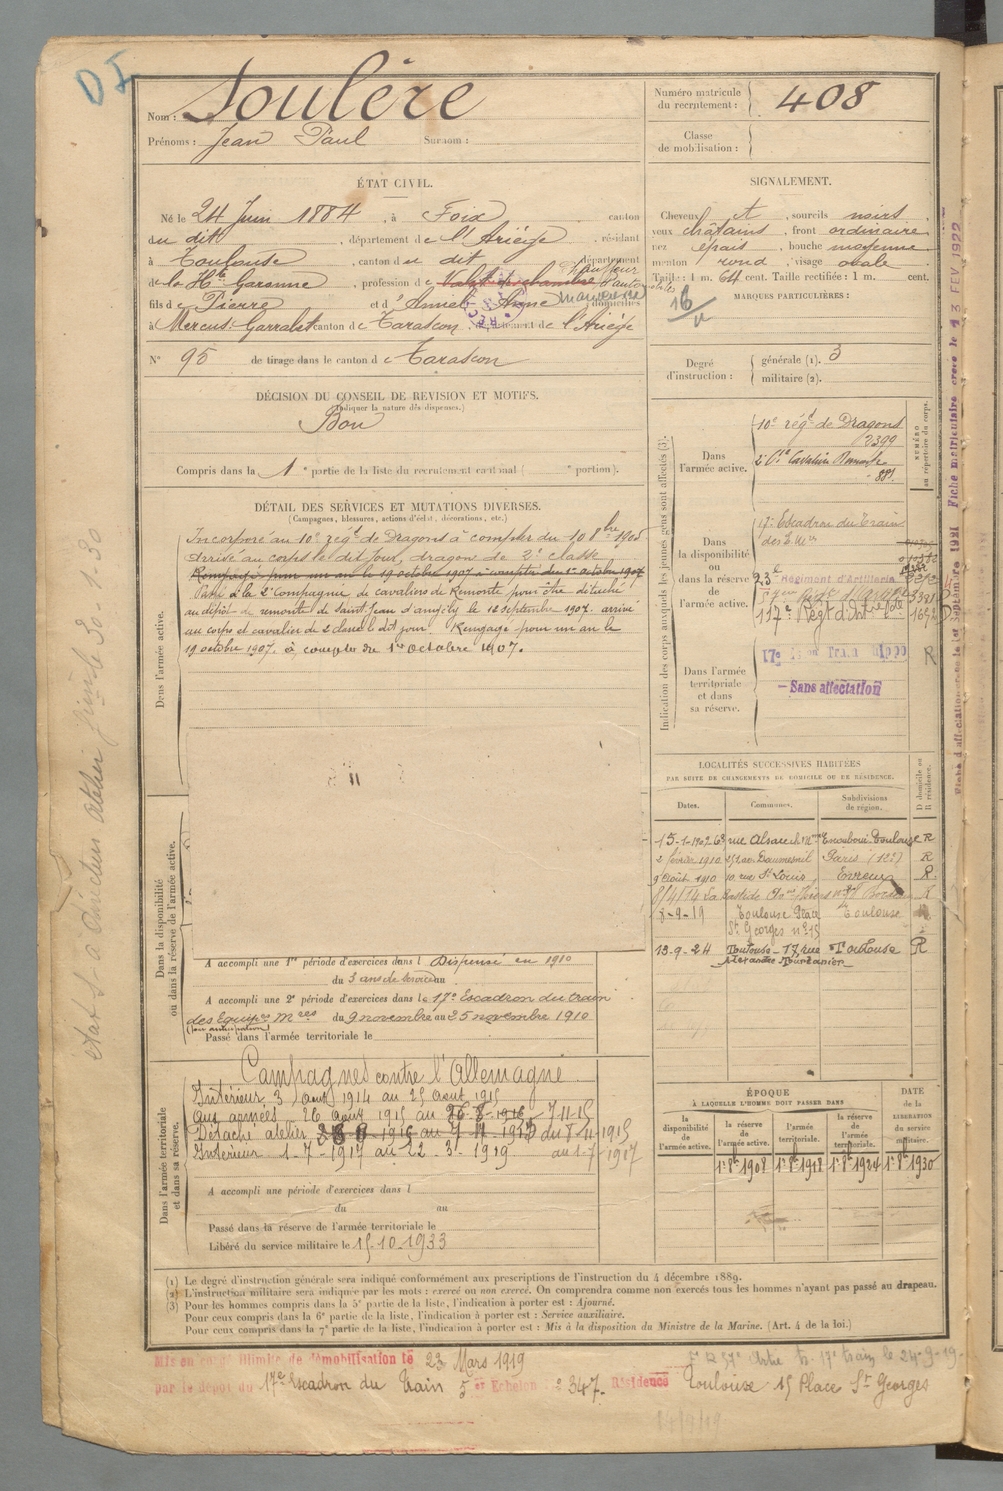 D I
Nom : Soulère
Prénoms : Jean Paul Surnom :
Numéro matricule du recrutement : 408
Classe de mobilisation :
ÉTAT CIVIL.
Né le 24 Juin 1884, à Foix canton
du dit, département de l'Ariège, résidant
à Toulouse, canton du dit département
de la Hte Garonne, profession de Valet de chambre chauffeur d'auto
fils de Pierre et d'Amiel Anne domiciliés
à Mercus-Garrabet canton de Tarascon département de l'Ariège
N° 95 de tirage dans le canton de Tarascon
SIGNALEMENT.
Cheveux et, sourcils noirs,
yeux châtains, front ordinaire
nez épais, bouche moyenne
menton rond, visage ovale
Taille : 1 m. 64 cent. Taille rectifiée : 1 m. cent.
MARQUES PARTICULIÈRES :
Degré d'instruction : générale (1). 3
militaire (2).
DÉCISION DU CONSEIL DE REVISION ET MOTIFS.
(Indiquer la nature des dispenses.)
Bon
Compris dans la 1e partie de la liste du recrutement cantonal ( e portion).
DÉTAIL DES SERVICES ET MUTATIONS DIVERSES.
(Campagnes, blessures, actions d'éclat, décorations, etc.)
Dans l'armée active.
Incorporé au 10e régt de Dragons à compter du 10 8bre 1905
arrivé au corps le dit jour, dragon de 2e classe
Rengagé pour un an le 19 octobre 1907 à compter du 1er octobre 1907
Passé à la 2e Compagnie de cavaliers de Remonte pour être détaché
au dépôt de remonte de Saint Jean d'angély le 12 septembre 1907. arrivé
au corps et cavalier de 2e classe le dit jour. Rengagé pour un an le
19 octobre 1907. à compter du 1er Octobre 1907.
Indication des corps auxquels les jeunes gens sont affectés (3).
NUMÉRO au répertoire du corps.
Dans l'armée active.
10e régt de Dragons
2399
2e Cie Cavaliers Remonte
881
Dans la disponibilité ou dans la réserve de l'armée active.
17e Escadron du Train
des E. Mres
23e Régiment d'Artillerie
117e Regt d'Artie lde
Dans l'armée territoriale et dans sa réserve.
17e Train Hippo R
Sans affectation
LOCALITÉS SUCCESSIVES HABITÉES
PAR SUITE DE CHANGEMENTS DE DOMICILE OU DE RÉSIDENCE.
Dates. Communes. Subdivisions de région. D domicile ou R résidence.
15-1-1902 63 rue Alsace Toulouse R
2 février 1910 Daumesnil Paris (12e) R
9 Août 1910 10 rue St Louis, Evreux R
8/4/14 La Bastide Bordeaux R
18-9-19 Toulouse Place St Georges n° 15 Toulouse R
13-9-24 Toulouse - 17, rue Alexandre Fourtanier Toulouse R
Dans la disponibilité ou dans la réserve de l'armée active.
A accompli une 1re période d'exercices dans l Dispensé en 1910
du 3 ans de service au
A accompli une 2e période d'exercices dans le 17e Escadron du train
des Equipes Mres du 9 novembre au 25 novembre 1910
(par anticipation)
Passé dans l'armée territoriale le
Dans l'armée territoriale et dans sa réserve.
Campagnes contre l'Allemagne
Intérieur 3 Aout 1914 au 25 Aout 1915
Aux armées 26 Aout 1915 au 7-11-15
Détaché atelier du 8-11-1915
au 1-7-1917
Intérieur 1-7-1917 au 22-3-1919
A accompli une période d'exercices dans l
du au
Passé dans la réserve de l'armée territoriale le
Libéré du service militaire le 15-10-1933
ÉPOQUE
À LAQUELLE L'HOMME DOIT PASSER DANS
la disponibilité de l'armée active. la réserve de l'armée active. l'armée territoriale. la réserve de l'armée territoriale. DATE de la LIBÉRATION du service militaire.
1er 8bre 1908 1er 8bre 1918 1er 8bre 1924 1er 8bre 1930
(1) Le degré d'instruction générale sera indiqué conformément aux prescriptions de l'instruction du 4 décembre 1889.
(2) L'instruction militaire sera indiquée par les mots : exercé ou non exercé. On comprendra comme non exercés tous les hommes n'ayant pas passé au drapeau.
(3) Pour les hommes compris dans la 5e partie de la liste, l'indication à porter est : Ajourné.
Pour ceux compris dans la 6e partie de la liste, l'indication à porter est : Service auxiliaire.
Pour ceux compris dans la 7e partie de la liste, l'indication à porter est : Mis à la disposition du Ministre de la Marine. (Art. 4 de la loi.)
Mis en congé illimité de démobilisation le 23 Mars 1919
par le dépôt du 17e Escadron du Train 5e Echelon n° 347. Résidence Toulouse 15 Place St Georges